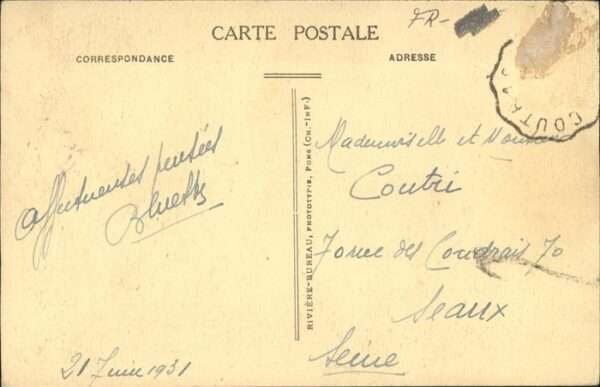 FR-
CARTE POSTALE
CORRESPONDANCE
ADRESSE
COUTRAS
affectueuses pensées
Bluette
21 Juin 1931
RIVIÈRE-BUREAU, PHOTOTYPIE, PONS (CH.-INF.)
Mademoiselle et Monsieur
Coutri
70 rue des Coudrais 70
Sceaux
Seine